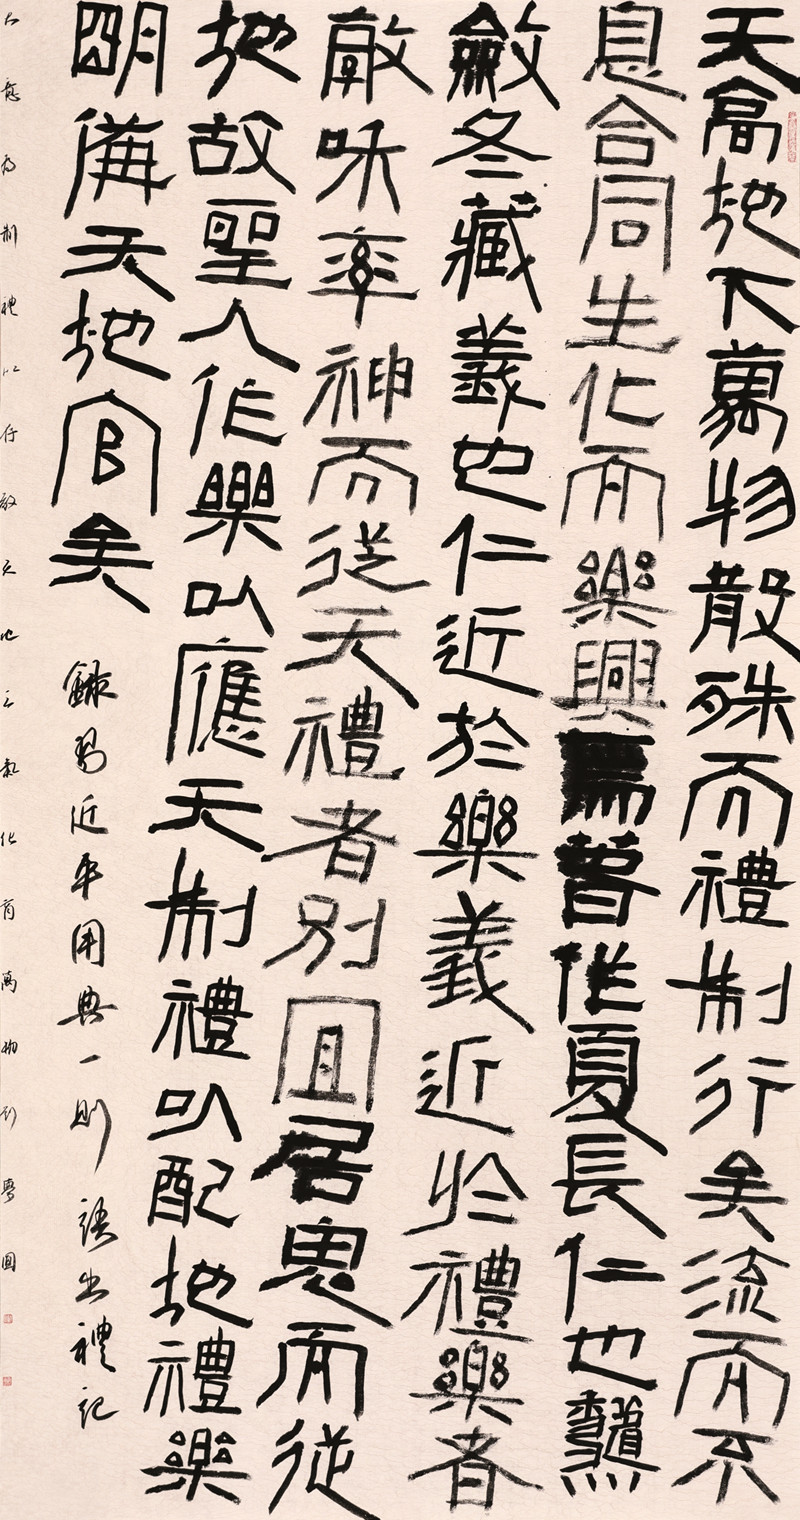 天高地下萬物散殊而禮制行矣流而不
息合同生化而樂興焉春作夏長仁也龝
斂冬藏義也仁近於樂義近於禮樂者
敦咊率神而從天禮者別宜居鬼而從
地故聖人作樂以應天制禮以配地禮樂
明備天地官矣
錄習近平用典一則 語出禮記
應為制禮以行 天地之氣化育萬物